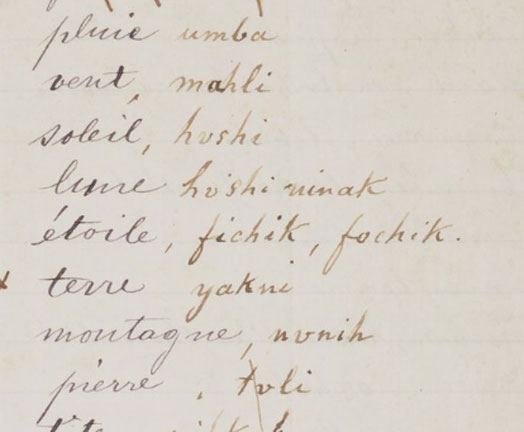 pluie umba
vent, mahli
soleil, hvshi
lune hvshi ninak
étoile, fichik, fochik.
terre yakni
montagne, nvnih
pierre, tvli